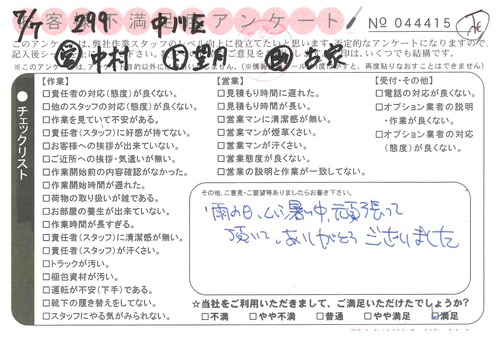 7/7 299 中川区
お客様不満足度アンケート No 044415
中村 望月
このアンケートは、弊社作業スタッフのレベル向上に役立てたいと思います。否定的なアンケートになりますので、
【作業】
□責任者の対応(態度)が良くない。
□他のスタッフの対応(態度)が良くない。
□作業を見ていて不安がある。
□責任者(スタッフ)に好感が持てない。
□お客様への挨拶が出来ていない。
□ご近所への挨拶・気遣いが無い。
□作業開始前の内容確認がなかった。
□作業開始時間が遅れた。
□荷物の取り扱いが雑である。
□お部屋の養生が出来ていない。
□作業時間が長すぎる。
□責任者(スタッフ)に清潔感が無い。
□責任者(スタッフ)が汗くさい。
□トラックが汚い。
□梱包資材が汚い。
□運転が不安(下手)である。
□靴下の履き替えをしてない。
□スタッフにやる気がみられない。
【営業】
□見積もり時間に遅れた。
□見積もり時間が長い。
□営業マンに清潔感が無い。
□営業マンが煙草くさい。
□営業マンが汗くさい。
□営業態度が良くない。
□営業の説明と作業が一致してない。
【受付・その他】
□電話の対応が良くない。
□オプション業者の説明
・作業が良くない。
□オプション業者の対応
(態度)が良くない。
チェックリスト
その他、ご意見・ご要望等ありましたらお書き下さい。
雨の日、という暑い中、頑張って
頂いて、ありがとう ございました
☆当社をご利用いただきまして、ご満足いただけたでしょうか?
□不満 □やや不満 □普通 □やや満足 □満足